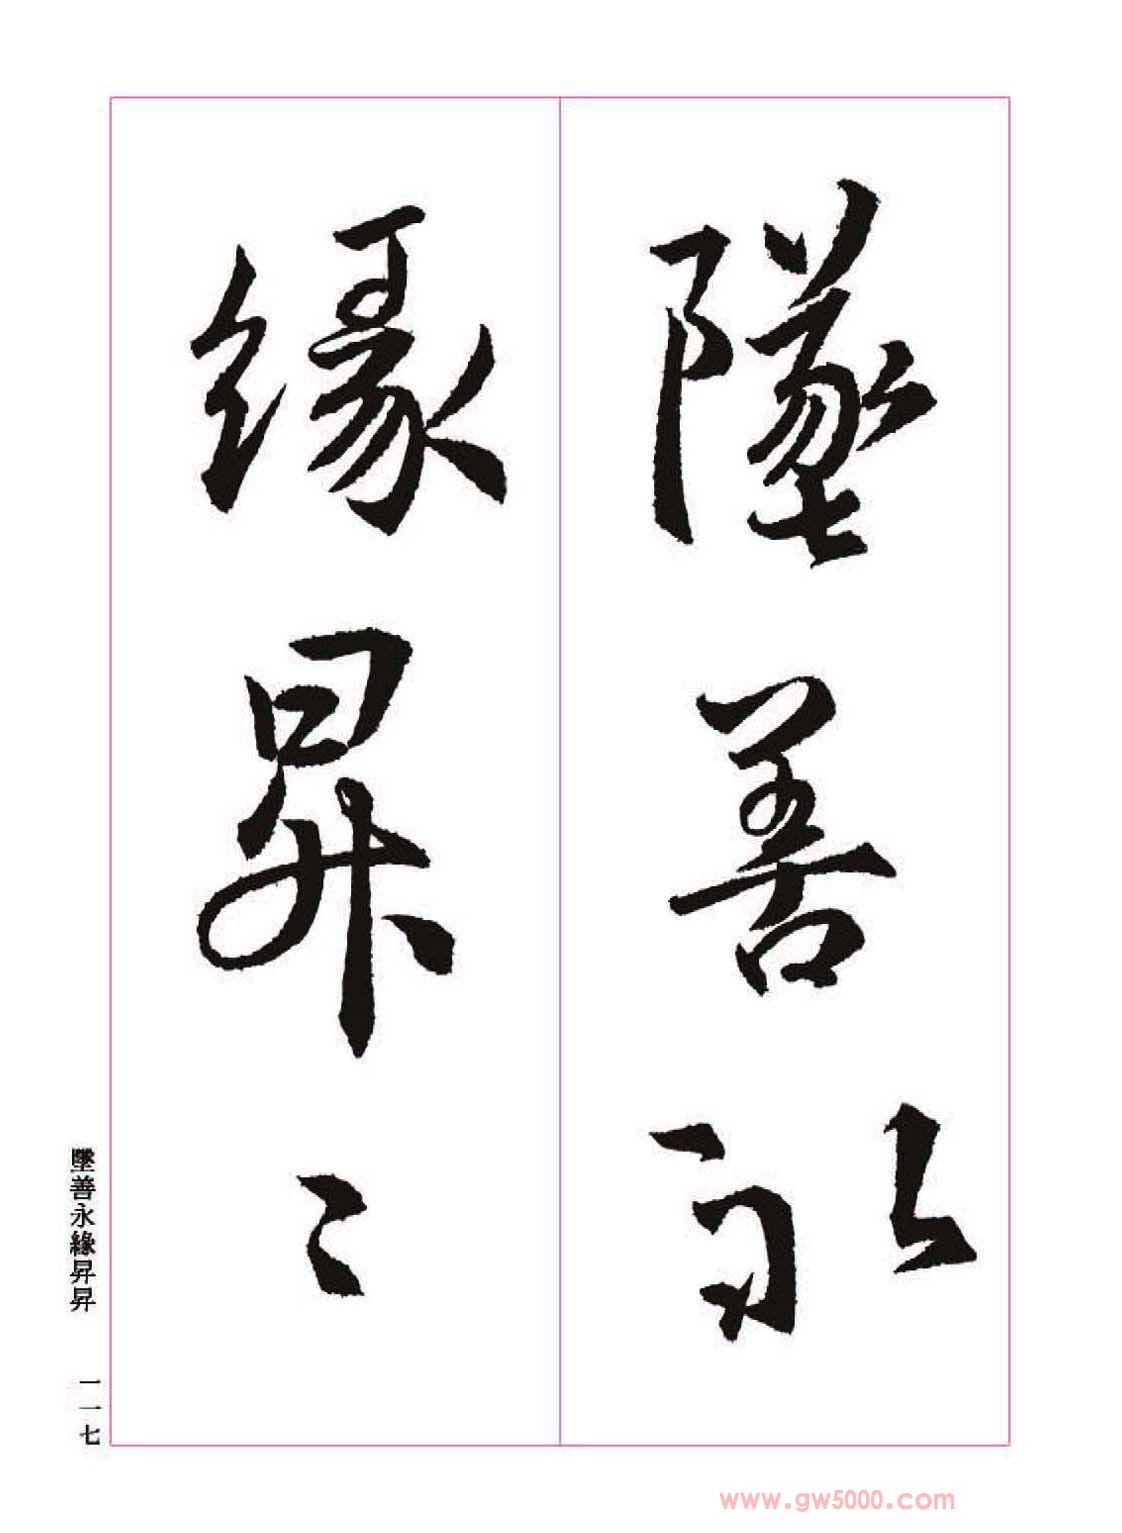 墜善永
緣昇〻
墜善永緣昇昇
一一七
www.gw5000.com